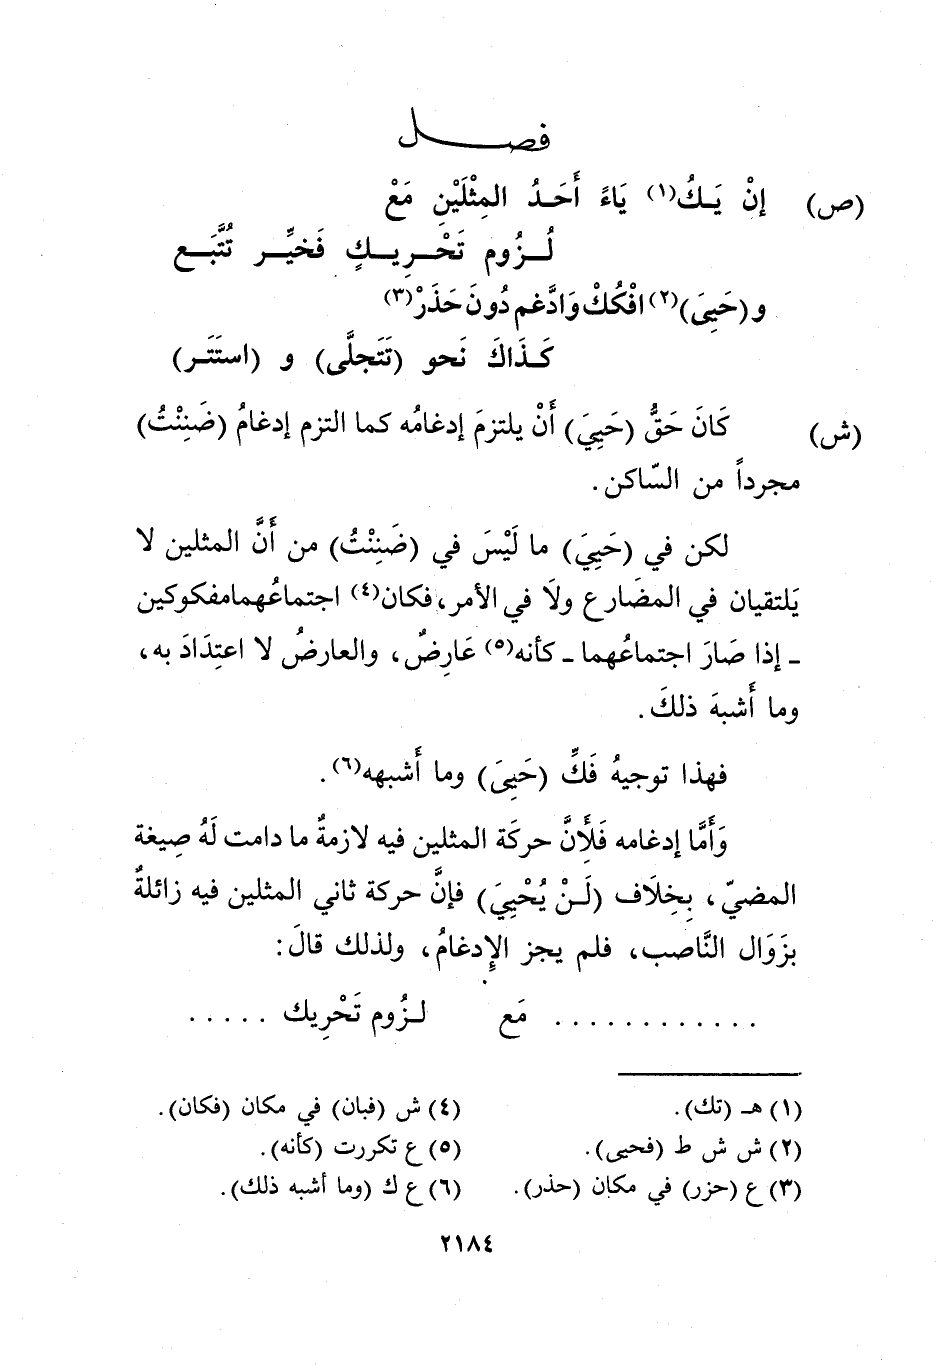 فصل
(ص) إنْ يَكُ(١) يَاءً أَحَدُ المِثْلَيْنِ مَعْ
لُزُومِ تَحْرِيكٍ فَخيِّر تُتَّبَع
و(حَيِيَ)(٢) افْكُكْ وَادَّغم دُونَ حَذَرْ(٣)
كَذَاكَ نَحو (تَتَجلَّى) و (استَتَر)
(ش) كَانَ حَقُّ (حَيِيَ) أَنْ يلتزمَ إدغامُه كما التزم إدغامُ (ضَنِنْتُ)
مجرداً من السّاكن.
لكن في (حَيِيَ) ما لَيْسَ في (ضَنِنْتُ) من أَنَّ المثلين لا
يَلتقيان في المضَارع ولَا في الأمر، فكان(٤) اجتماعُهما مفكوكين
ـ إذا صَارَ اجتماعُهما ـ كأنه(٥) عَارِضٌ، والعارضُ لا اعتِدَادَ به،
وما أَشبهَ ذلكَ.
فهذا توجيهُ فَكِّ (حَيِيَ) وما أَشبهه(٦).
وَأَمَّا إدغامه فَلِأَنَّ حركَة المثلين فيه لازمةٌ ما دامت لَهُ صِيغة
المضيّ، بِخِلَاف (لَنْ يُحْيِيَ) فإنَّ حركة ثاني المثلين فيه زائلةٌ
بزَوَال النَّاصب، فلم يجز الإِدغامُ، ولذلك قالَ:
. . . . . . . . . . . . مَع لزُوم تَحْرِيك . . . . .
(١) هـ (تك).
(٢) ش ش ط (فحيى).
(٣) ع (حزر) في مكان (حذر).
(٤) ش (فبان) في مكان (فكان).
(٥) ع تكررت (كأنه).
(٦) ع ك (وما أشبه ذلك).
٢١٨٤